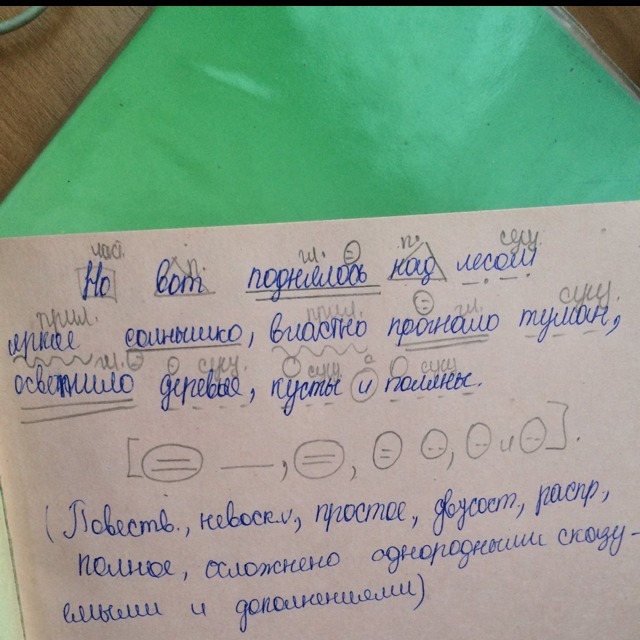 част. п. гл. п. сущ.
Но вот поднялось над лесом
прил. прил. гл. сущ.
яркое солнышко, властно прогнало туман,
гл. сущ. сущ. с сущ.
осветило деревья, кусты и поляны.
[ , , , и ].
(Повеств., невоскл, простое, двусост, распр,
полное, осложнено однородными сказу-
емыми и дополнениями)